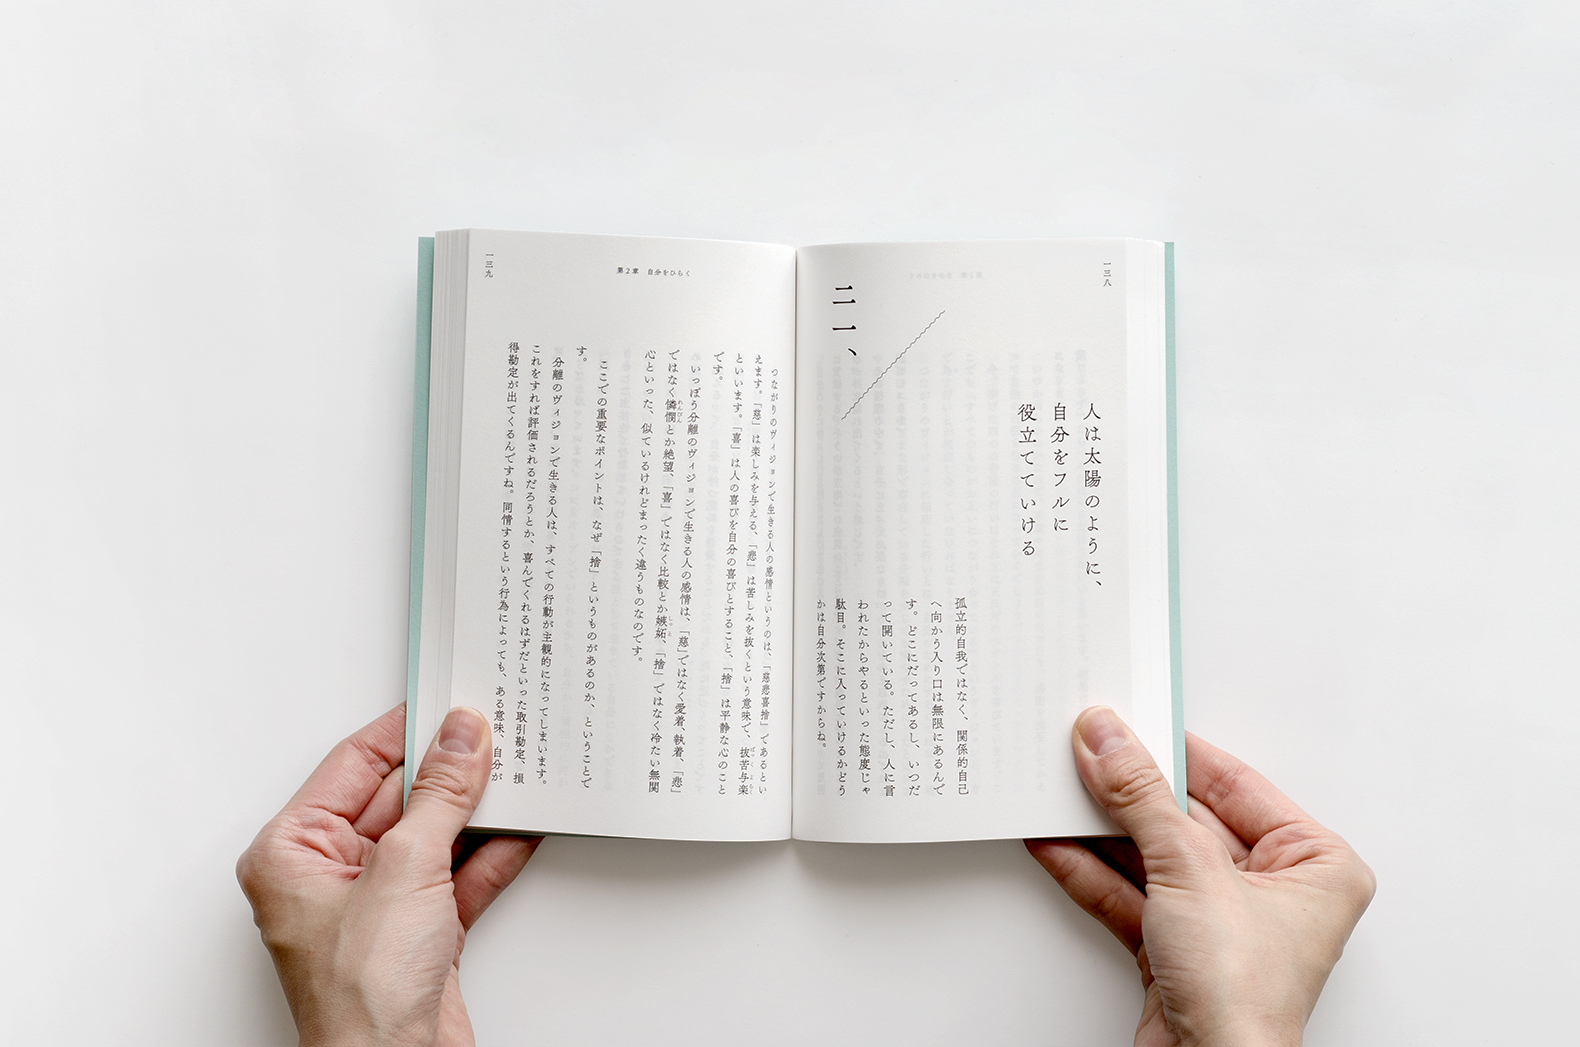 一三八
二一、
人は太陽のように、
自分をフルに
役立てていける
孤立的自我ではなく、関係的自己
へ向かう入り口は無限にあるんで
す。どこにだってあるし、いつだ
って開いている。ただし、人に言
われたからやるといった態度じゃ
駄目。そこに入っていけるかどう
かは自分次第ですからね。
一三九
第2章 自分をひらく
つながりのヴィジョンで生きる人の感情というのは、「慈悲喜捨」であるとい
えます。「慈」は楽しみを与える、「悲」は苦しみを抜くという意味で、抜苦与楽
といいます。「喜」は人の喜びを自分の喜びとすること、「捨」は平静な心のこと
です。
いっぽう分離のヴィジョンで生きる人の感情は、「慈」ではなく愛着、執着、「悲」
ではなく憐憫とか絶望、「喜」ではなく比較とか嫉妬、「捨」ではなく冷たい無関
心といった、似ているけれどまったく違うものなのです。
ここでの重要なポイントは、なぜ「捨」というものがあるのか、ということで
す。
分離のヴィジョンで生きる人は、すべての行動が主観的になってしまいます。
これをすれば評価されるだろうとか、喜んでくれるはずだといった取引勘定、損
得勘定が出てくるんですね。同情するという行為によっても、ある意味、自分が